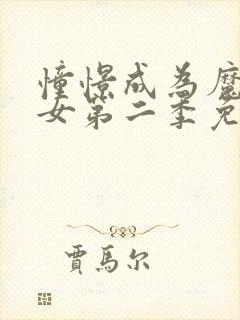 憧憬成為魔
女第二季免
賈馬尔